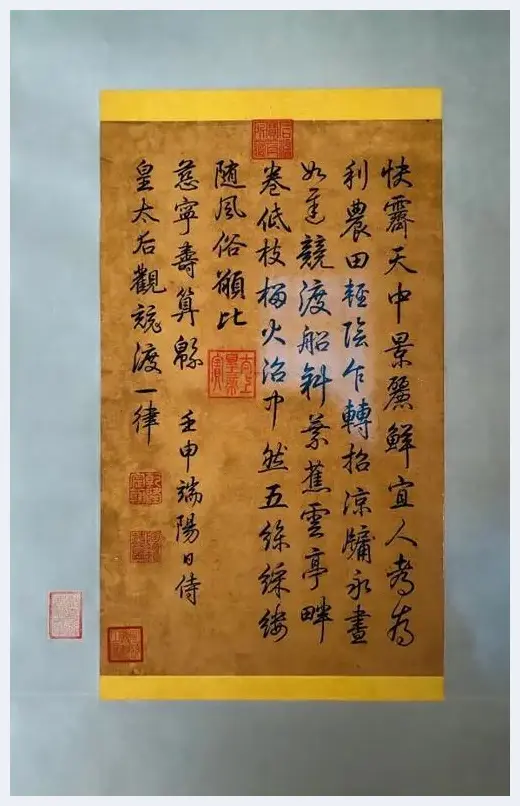 快霽天中景麗鮮宜人為
利農田輕陰乍轉招涼牖永晝
如遲競渡船斜葉蕉雲亭畔
卷低枝榴火沼中然五絲綵縷
隨風俗願比
慈寧壽算緜 壬申端陽日侍
皇太后觀競渡一律